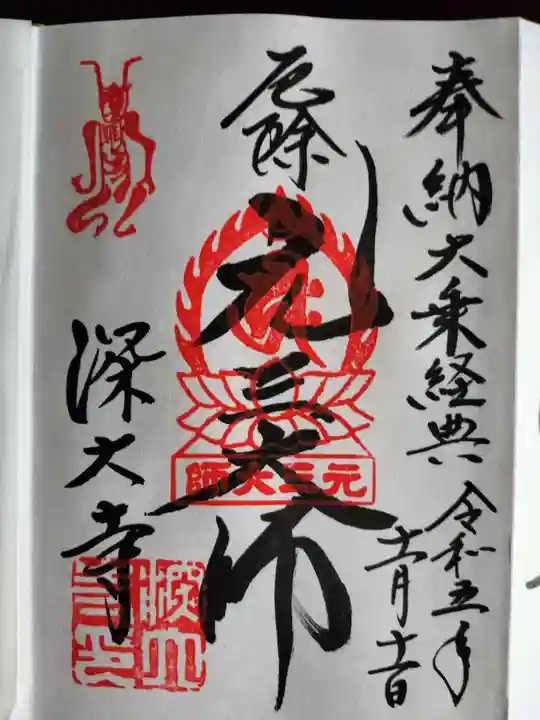 奉納大乗経典 令和五年
十一月十一日
厄除
元三大師
元三大師
深大寺